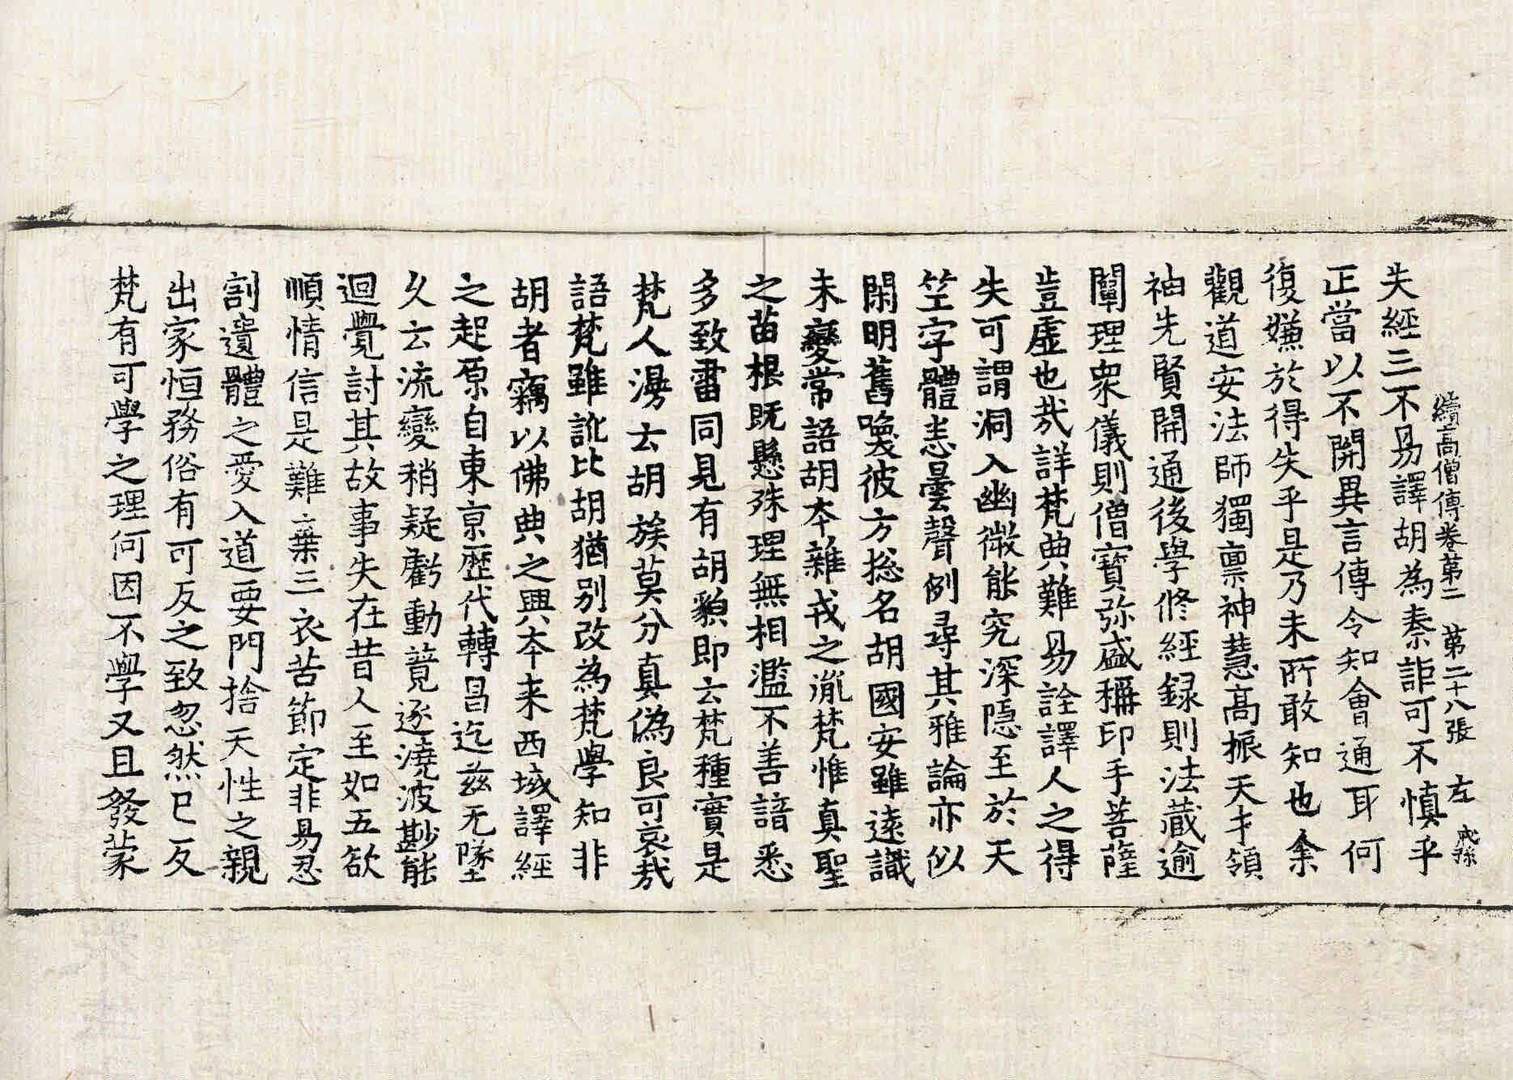 續高僧傳卷第二　第二十八張　左
失經三不易譯胡為秦詎可不慎乎
正當以不開異言傳令知會通耳何
復嫌於得失乎是乃未所敢知也余
觀道安法師獨禀神慧高振天才領
袖先賢開通後學修經録則法藏逾
闡理衆儀則僧寶弥盛稱印手菩薩
豈虛也㢤詳梵典難易詮譯人之得
失可謂洞入幽微能究深隱至於天
竺字體悉曇聲例尋其雅論亦似
閑明舊喚彼方揔名胡國安雖遠識
未變常語胡夲雜戎之胤梵惟真聖
之苗根既懸殊理無相濫不善諳悉
多致雷同見有胡貌即云梵種實是
梵人漫云胡族莫分真偽良可哀㢤
語梵雖訛比胡猶别改為梵學知非
胡者竊以佛典之興夲来西域譯經
之起原自東京歷代轉昌迄兹无墜
久云流變稍疑虧動竟逐澆波尠能
迴覺討其故事失在昔人至如五欲
順情信是難棄三衣苦節定非易忍
割遺體之愛入道要門捨天性之親
出家恒務俗有可反之致忽然已反
梵有可學之理何因不學又且發蒙